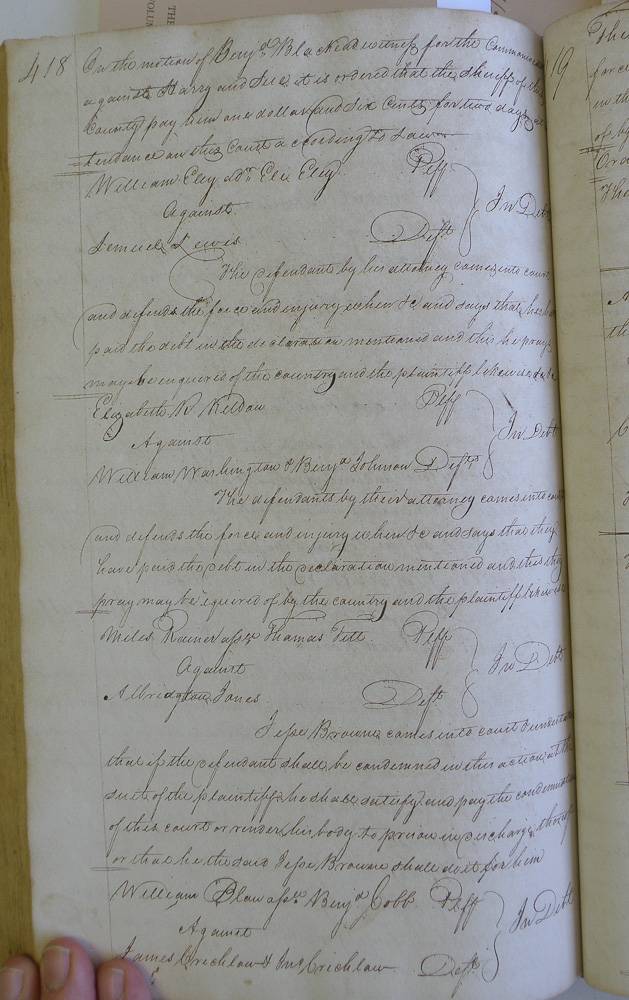 418
On the motion of Benjn Blacked witness for the Commonwea
against Harry and Sue it is ordered that the sheriff of this
County pay him one dollar and Six Cents for two days at
tendance on this Court according to Law
William Eley adr Eli Eley Plff
Against In Debt
Lemuel Lewis Deft
The defendant by his attorney comes into court
and defends the force and injury when &c and says that he ha
paid the debt in the declaration mentioned and this he prays
may be enquered of the country and the plaintiff likewise
Elizabeth R Plff
Against In Debt
William Washington & Benja Johnson Defts
The defendants by their attorney comes into cou
and defends the force and injury when &c and says that they
have paid the debt in the declaration mentioned and this they
pray may be equered of by the country and the plaintiff likewise
Miles assr Thomas Plff
Against In Debt
Albridgton Jones Deft
Jesse Browne comes into court & under
that if the defendant shall be condemned in this action at the
suit of the plaintiff he shall satisfy and pay the condemn
of this court or render his body to prison in discharge thereof
or that he the said Jesse Browne shall do it for him
William Blow assr Benja Cobb Plff
Against In Debt
James Crichlow & Jno Crichlow Defts
19
The
force
in the
of by
Or
The
the